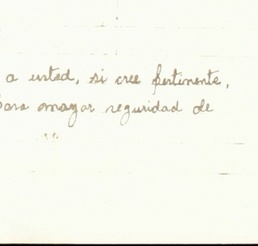 a usted, si cree pertinente,
para mayor seguridad de